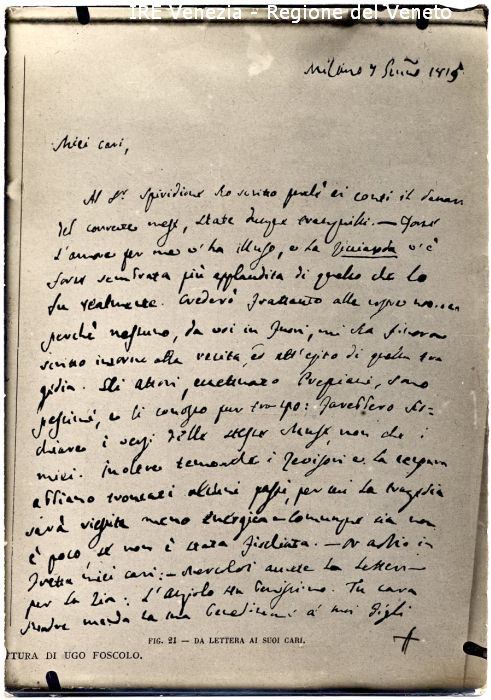 IRE Venezia - Regione del Veneto
Milano 7 1815
Miei cari,
Al Sr Spiridione ho scritto perchè ei conti il danaro
del corrente mese, state dunque tranquilli. — Forse
l'amore per me v'ha illuso, e la Ricciarda v'è
forse sembrata più applaudita di quello che lo
fu realmente. Crederò frattanto alle
perchè nessuno, da voi in fuori, mi ha finora
scritto intorno alla recita, ed all'esito di quella tra
gedia. Gli attori, eccettuato Prepiani, sono
pessimi, e li conosco pur troppo:
i versi delle stesse Muse, non che i
miei. Inoltre temo che i Revisori e la censura
abbiano troncati alcuni passi, per cui la tragedia
sarà riescita meno energica — Comunque sia non
è poco se non è stata fischiata. — in
fretta miei cari: — avrete la lettera
per la Zia: L'Angiolo sta benissimo. Tu cara
madre manda la tua benedizione a' tuoi figli
FIG. 21 — DA LETTERA AI SUOI CARI.
TTURA DI UGO FOSCOLO.